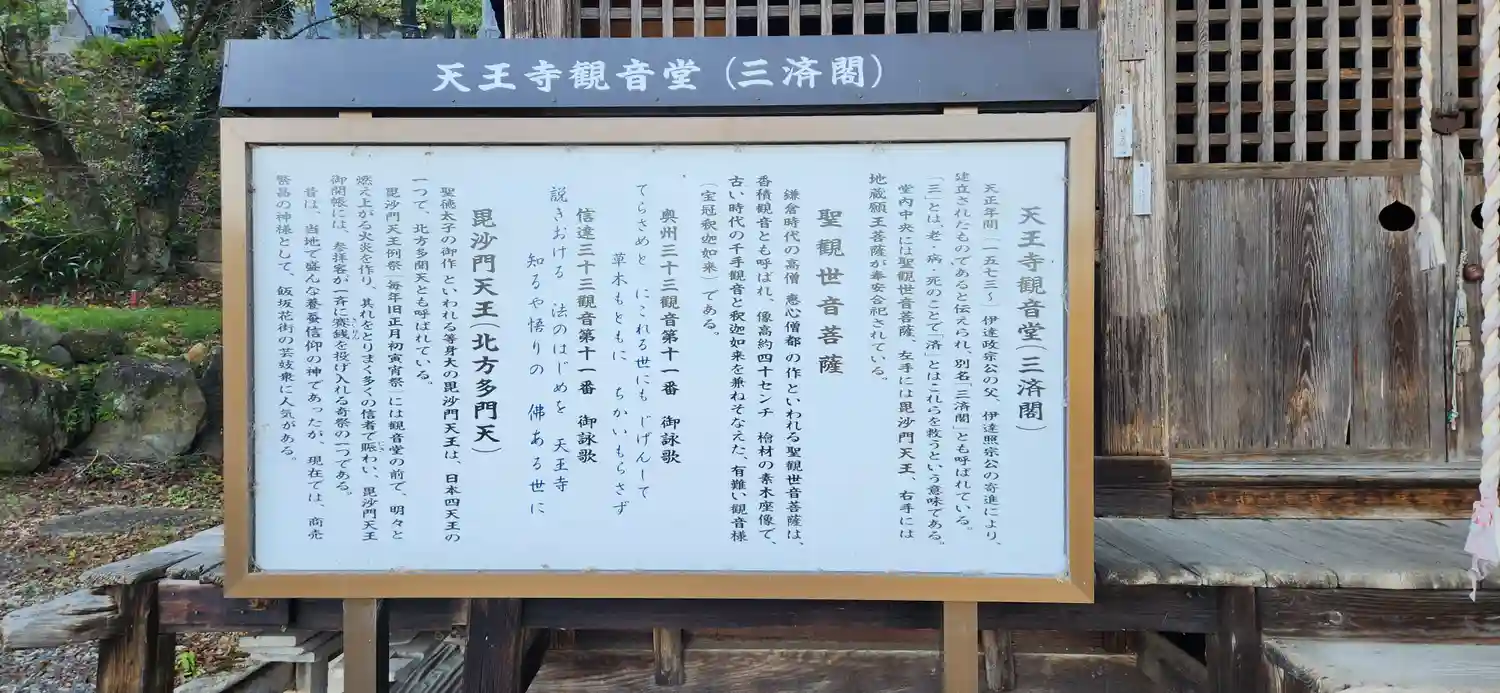 天王寺観音堂(三済閣)
天王寺観音堂(三済閣)
天正年間(一五七三〜)伊達政宗公の父、伊達照宗公の寄進により、
建立されたものであると伝えられ、別名「三済閣」とも呼ばれている。
「三」とは、老・病・死のことで「済」とはこれらを救うという意味である。
堂内中央には聖観世音菩薩、左手には毘沙門天王、右手には
地蔵願王菩薩が奉安合祀されている。
聖観世音菩薩
鎌倉時代の高僧 恵心僧都 の作といわれる聖観世音菩薩は、
香積観音とも呼ばれ、像高約四十センチ 檜材の素木座像で、
古い時代の千手観音と釈迦如来を兼ねそなえた、有難い観音様
(宝冠釈迦如来)である。
奥州三十三観音第十一番 御詠歌
てらさめと にこれる世にも じげんして
草木もともに ちかいもらさず
信達三十三観音第十一番 御詠歌
説きおける 法のはじめを 天王寺
知るや悟りの 佛ある世に
毘沙門天王(北方多門天)
聖徳太子の御作 といわれる等身大の毘沙門天王は、日本四天王の
一つて、北方多聞天とも呼ばれている。
毘沙門天王例祭(毎年旧正月初寅宵祭)には観音堂の前で、明々と
燃え上がる火炎を作り、其れをとりまく多くの信者で賑わい、毘沙門天王
御開帳には、参拝客が一斉に賽銭を投げ入れる奇祭の一つである。
昔は、当地で盛んな養蚕信仰の神であったが、現在では、商売
繁昌の神様として、飯坂花街の芸妓衆に人気がある。